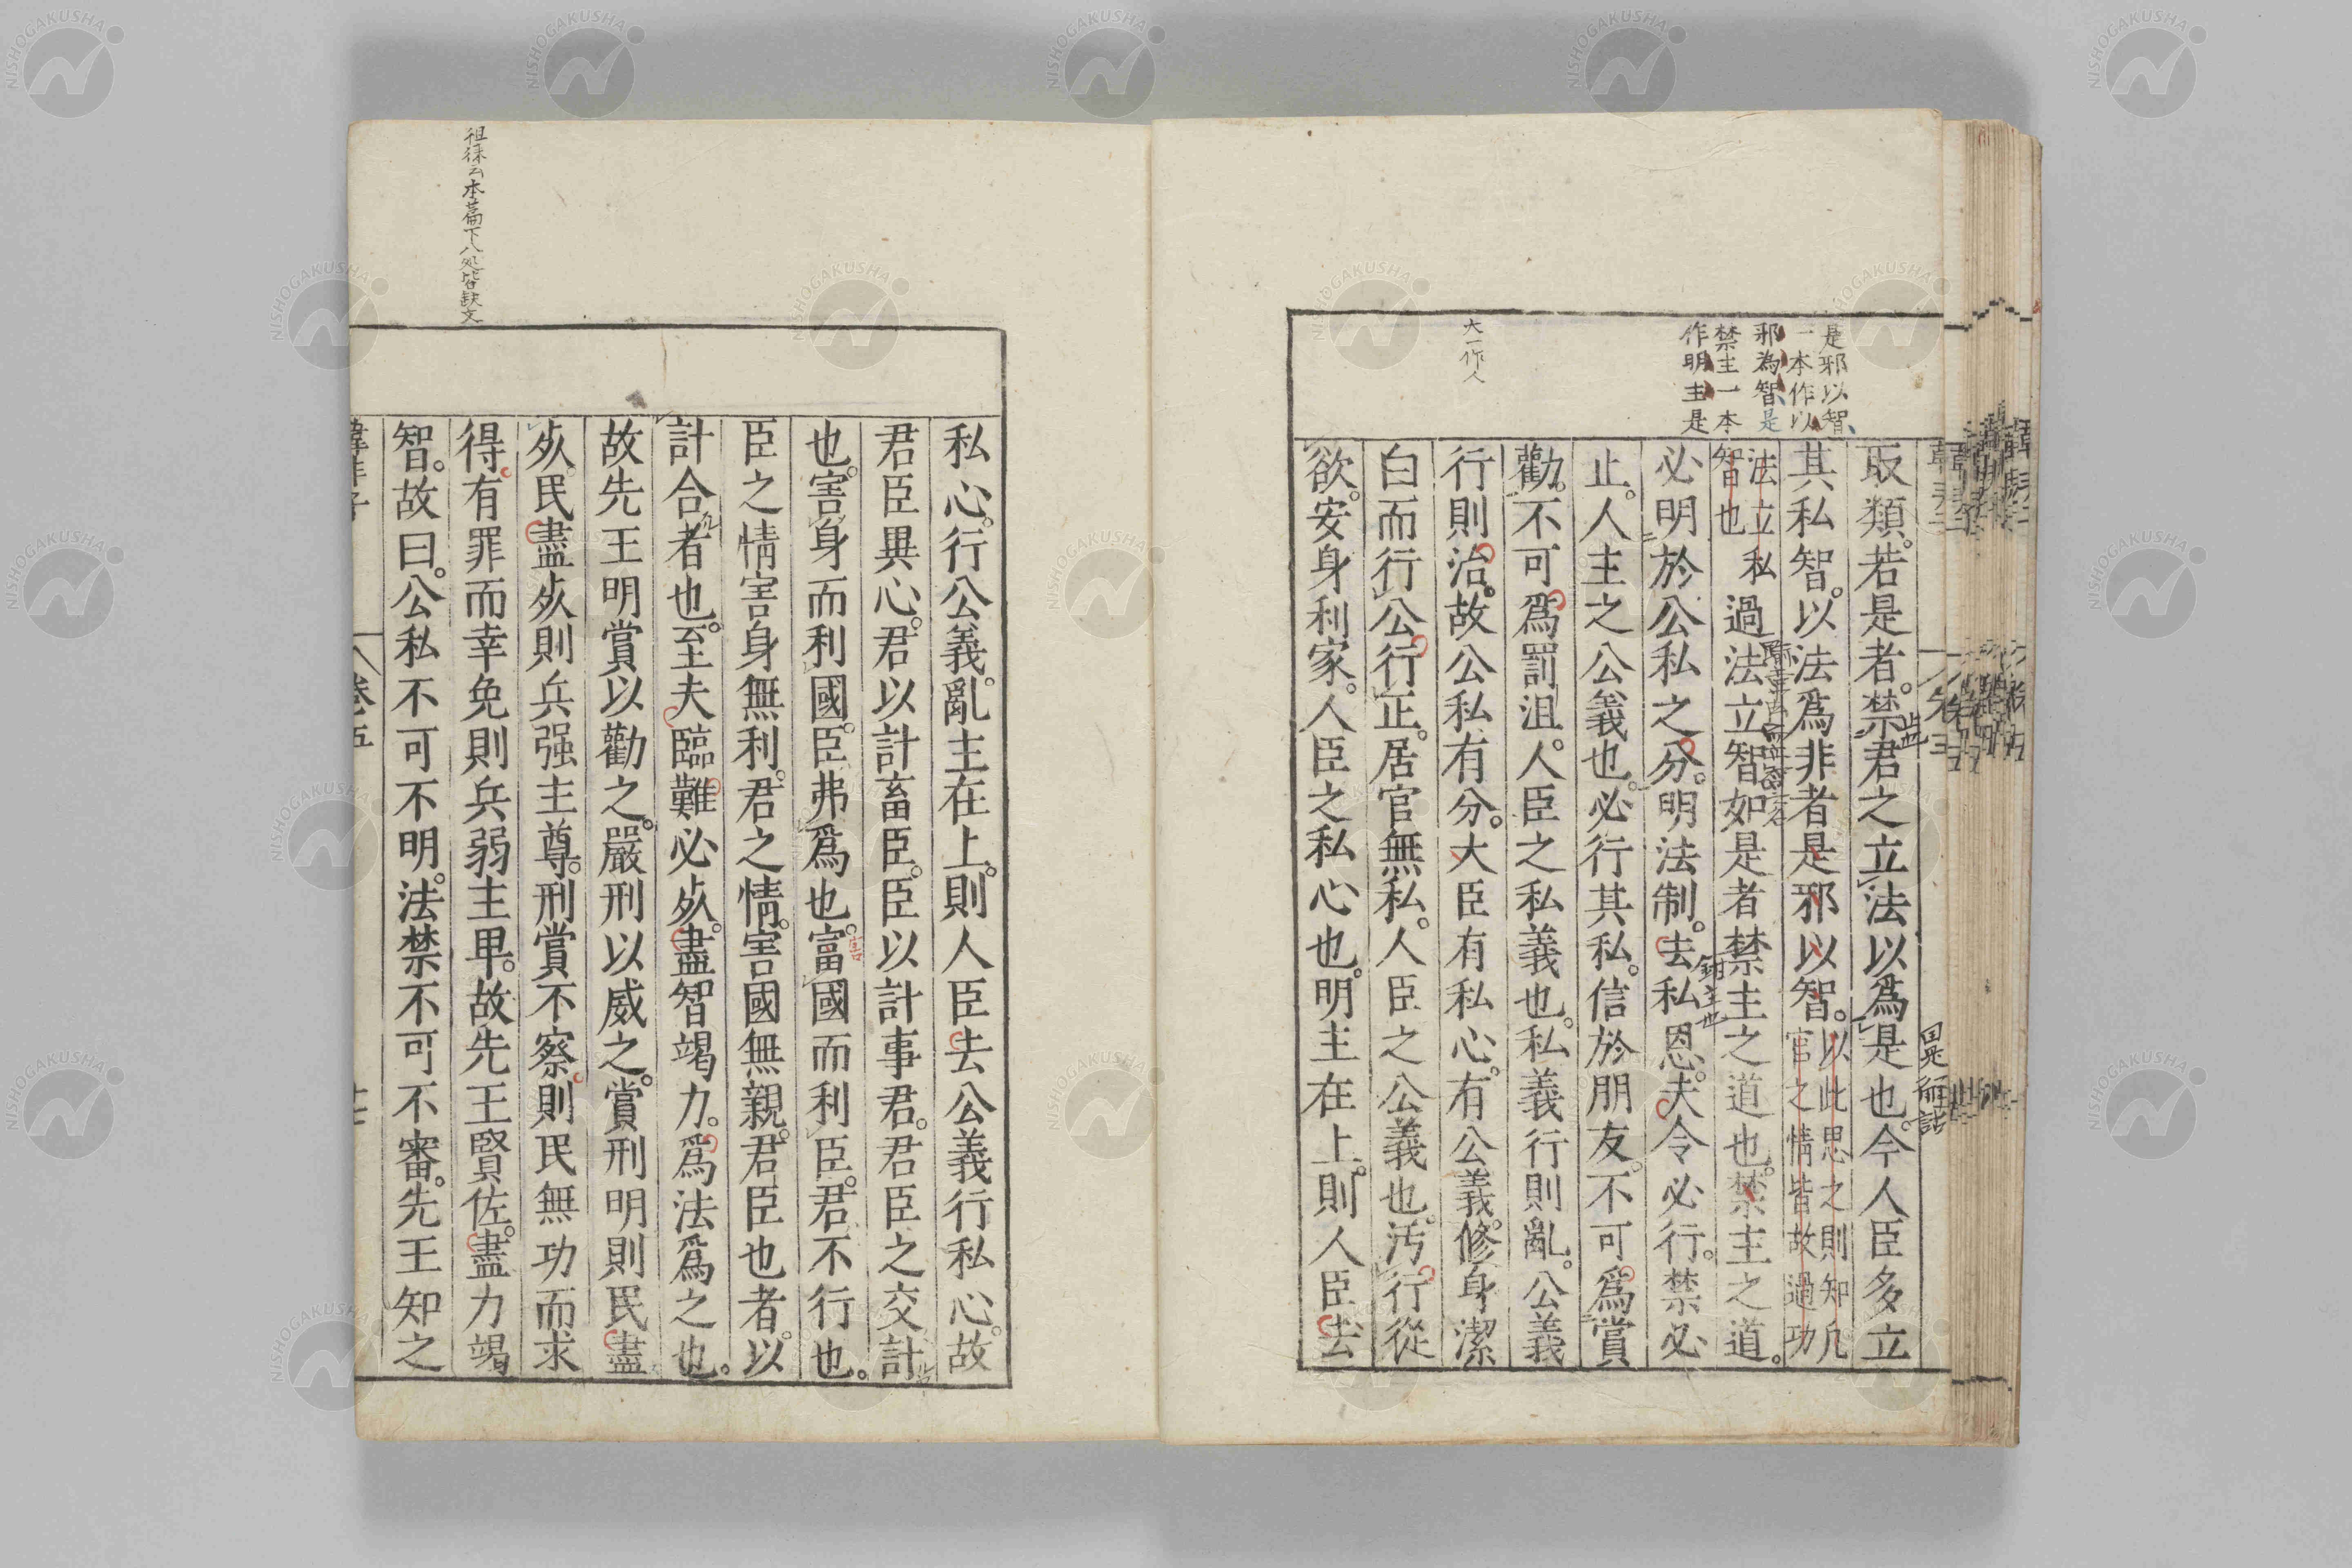 是邪以智
一本作以
邪為智是
禁主一本
作明主是
大一作人
取類。若是者。禁君之立法以爲是也。今人臣多立
其私智。以法爲非者是邪以智。以此思之則知凡官之情皆故過功
法立私智也過法立智如是者禁主之道也。禁主之道。
必明於公私之分。明法制。去私恩。夫令必行。禁必
止。人主之公義也。必行其私。信於朋友。不可爲賞
勸。不可爲罰沮。人臣之私義也。私義行則亂。公義
行則治。故公私有分。大臣有私心。有公義。修身潔
白而行公行正。居官無私。人臣之公義也。汚行從
欲。安身利家。人臣之私心也。明主在上。則人臣去
祖徠云本篇下八処皆缺文
私心。行公義。亂主在上。則人臣去公義行私心。故
君臣異心。君以計畜臣。臣以計事君。君臣之交計
也。害身而利國。臣弗爲也。富國而利臣。君不行也。
臣之情害身無利。君之情。害國無親。君臣也者。以
計合者也。至夫臨難必死。盡智竭力。爲法爲之也。
故先王明賞以勸之。嚴刑以威之。賞刑明則民盡
死民盡死則兵强主尊。刑賞不察則民無功而求
得有罪而幸免則兵弱主卑。故先王賢佐。盡力竭
智。故曰。公私不可不明。法禁不可不審。先王知之
韓非子 卷五
NISHOGAKUSHA